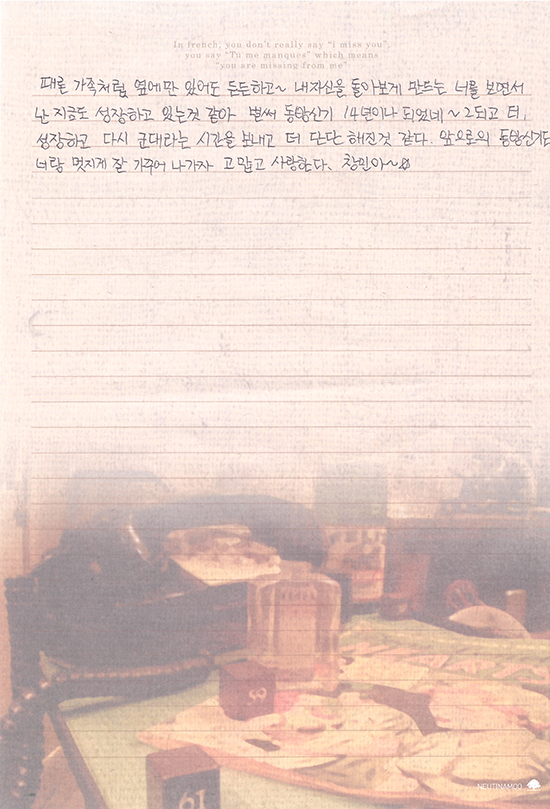 In french, you don't really say “i miss you”,
you say “Tu me manques” which means
“you are missing from me”
때로 가족처럼 옆에만 있어도 든든하고~ 내자신을 돌아보게 만드는 너를 보면서
난 지금도 성장하고 있는것 같아 벌써 동방신기 14년이나 되었네~ 2되고 더,
성장하고 다시 군대라는 시간을 보내고 더 단단 해진것 같다. 앞으로의 동방신기도
너랑 멋지게 잘 가꾸어 나가자 고맙고 사랑한다, 창민아~
NEUTINAMOO
59
61